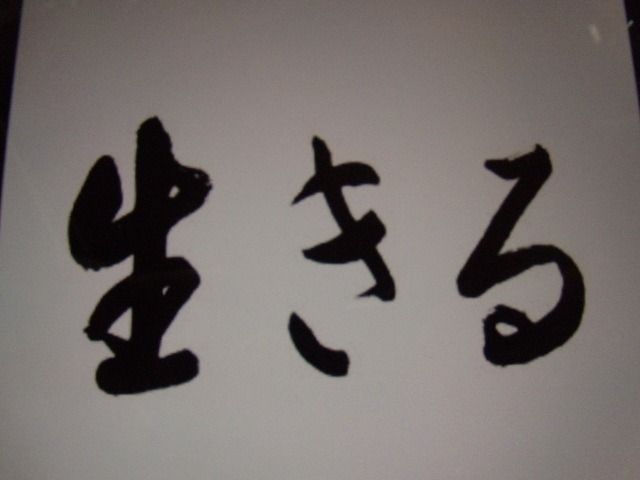 生きる